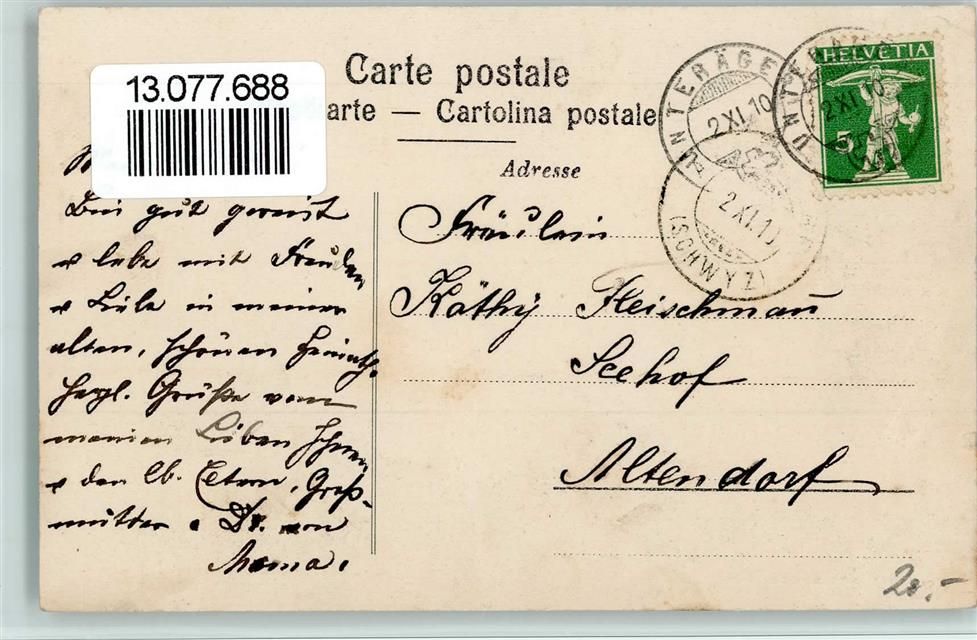 13.077.688
Carte postale
arte — Cartolina postale
Adresse
HELVETIA
5
UNTERÄGE
2 XI. 10
UNT
2 XI. 10
2 XI. 1
(SCHWYZ)
Bin gut gereist
u lebe mit Freuden
u Liebe in meiner
alten, schönen Heimath.
Hrzl. Grüße vom
meinen Lieben
u den lb. Eltern, Groß-
mutter u. Dr. von
Mama.
Fräulein
Käthy Fleischmann
Seehof
Altendorf
20.-